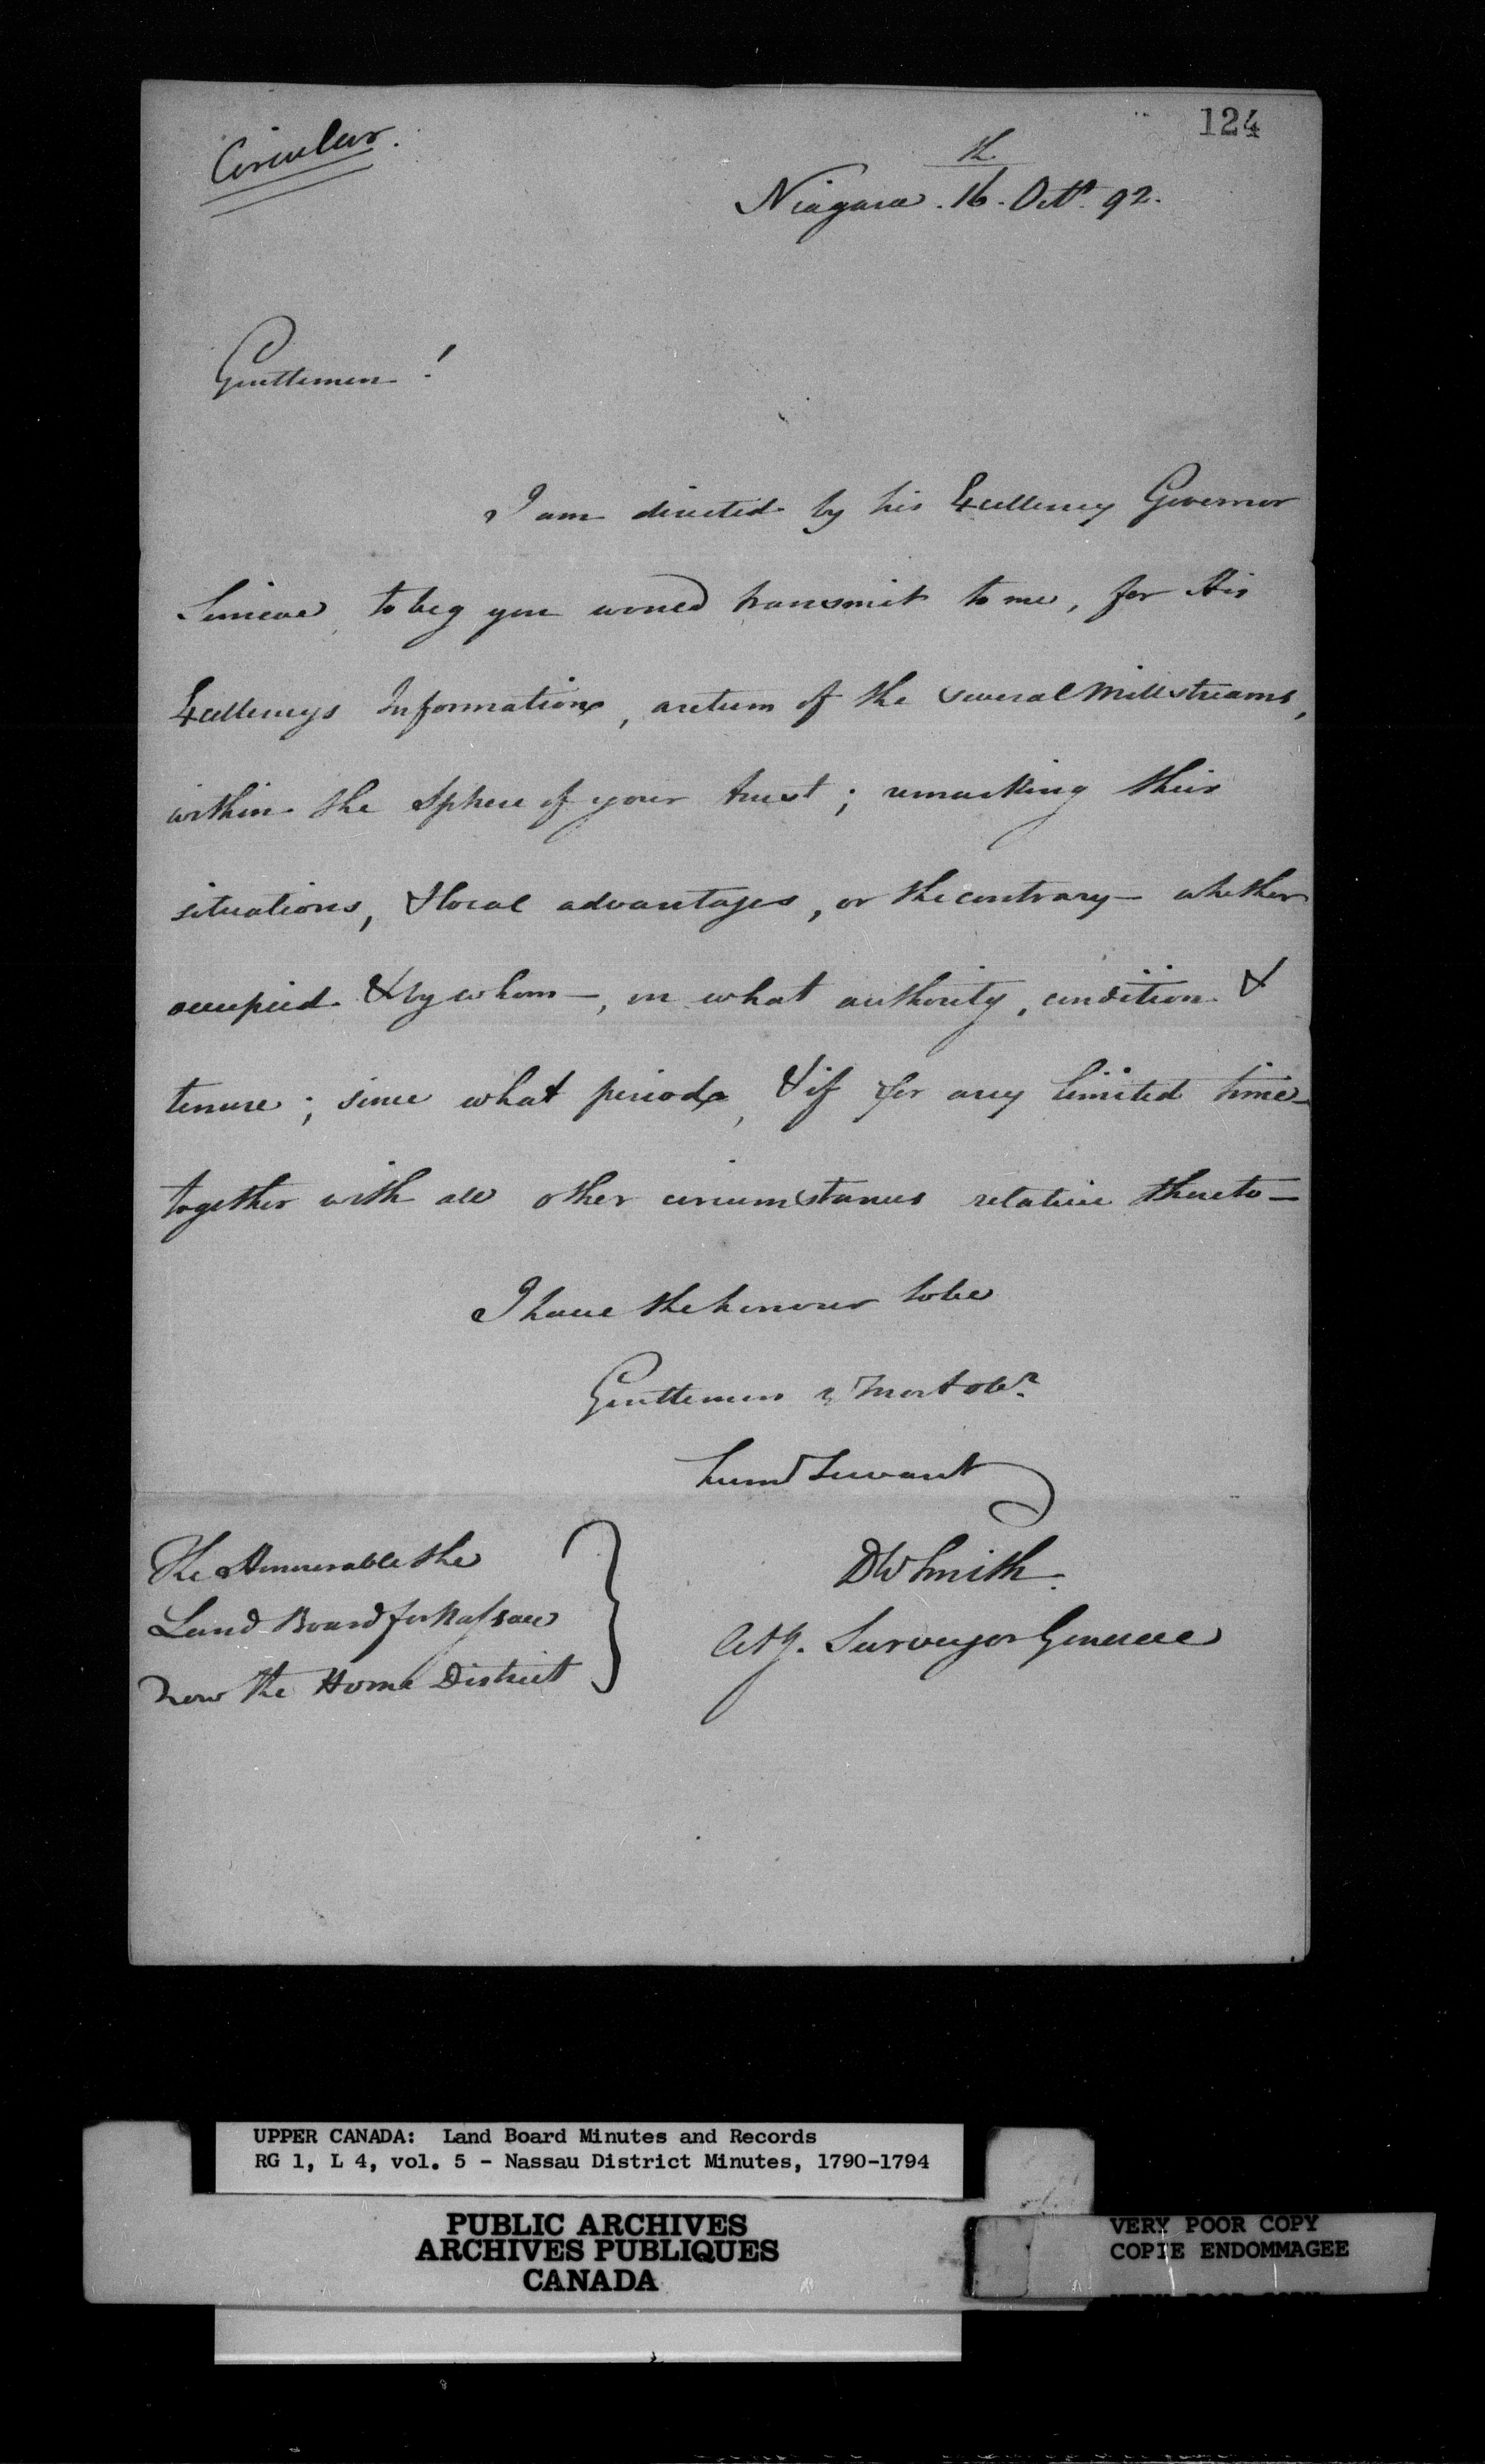 124
Circular.
Niagara. 16th. Octr. 92.
Gentlemen!
I am directed by his Excellency Governor
Simcoe, to beg you would transmit to me, for His
Excellencys Information, a return of the several Mill streams,
within the Sphere of your trust; remarking their
situations, & local advantages, or the contrary — whether
occupied & by whom —, on what authority, condition &
tenure; since what period, & if for any limited time —
together with all other circumstances relative thereto —
I have the honour to be
Gentlemen yr most obt.
huml Servant
The Honourable the
Land Board for Nassau
now the Home District
DW Smith.
Actg. Surveyor General
UPPER CANADA: Land Board Minutes and Records
RG 1, L 4, vol. 5 - Nassau District Minutes, 1790-1794
PUBLIC ARCHIVES
ARCHIVES PUBLIQUES
CANADA
VERY POOR COPY
COPIE ENDOMMAGEE